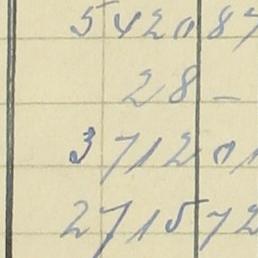 5420 87
28 -
3712 01
2715 72